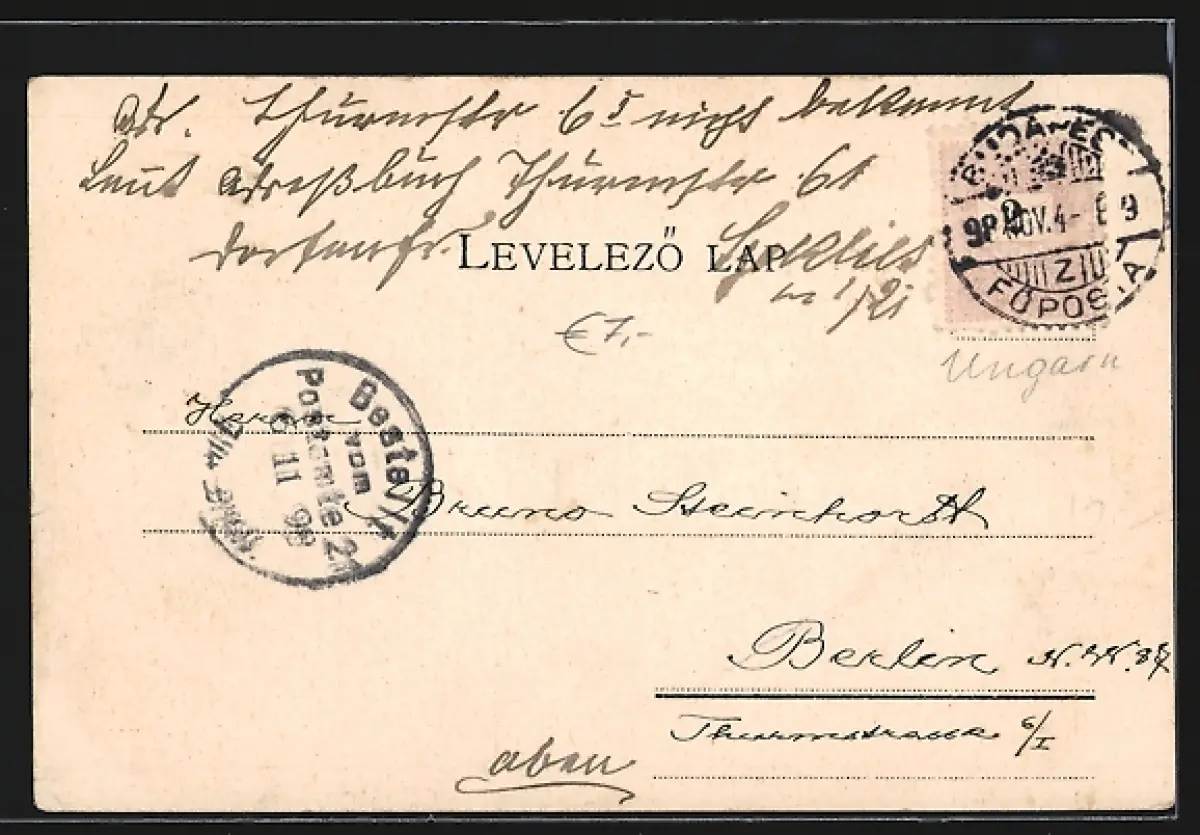 Adr. Thurmstr 6 I nicht bekannt
Laut Adreßbuch Thurmstr 61
LEVELEZŐ LAP
€ 7,-
BUDA-
98 NOV. 4
Z
FŐPOSTA
Ungarn
Bestellt
vom
Postamte 21
6 11 98
Herrn
Bruno Steinhorst
Berlin N.W. 87
Thurmstrasse 6/I
oben